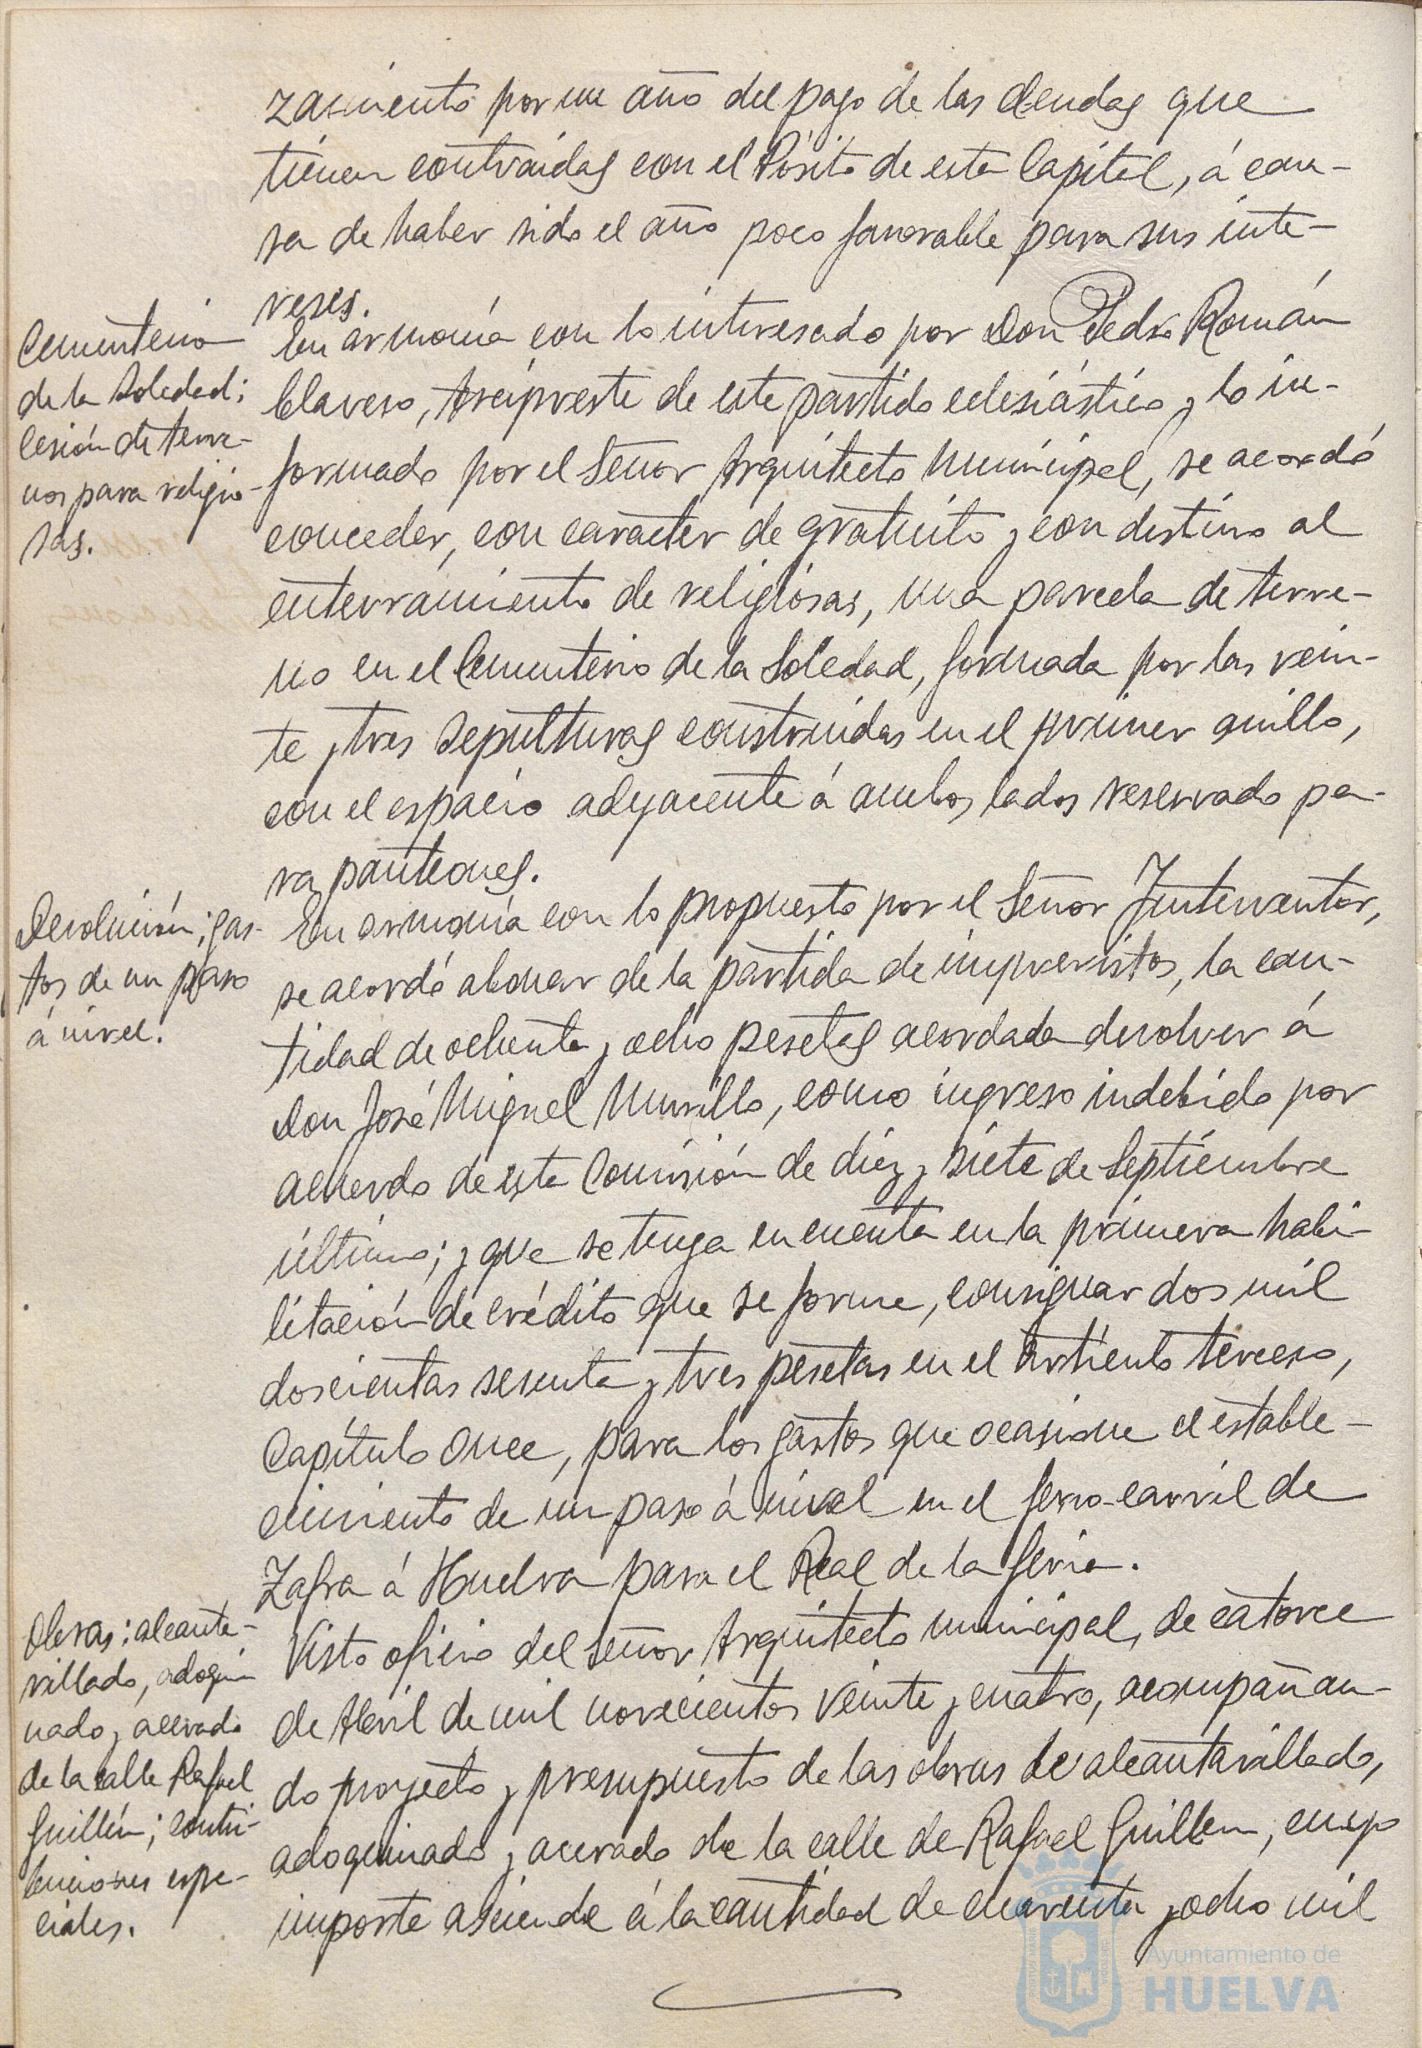 zamiento por un año del pago de las deudas que
tienen contraidas con el Pósito de esta Capital, á cau-
sa de haber sido el año poco favorable para sus inte-
reses.
Cementerio
de la Soledad;
cesión de terre-
nos para religio-
sas.
En armonía con lo interesado por Don Pedro Román
Clavero, Arcipreste de este partido eclesiástico y lo in-
formado por el Señor Arquitecto Municipal, se acordó
conceder, con carácter de gratuito y con destino al
enterramiento de religiosas, una parcela de terre-
no en el Cementerio de la Soledad, formada por las vein-
te y tres sepulturas construidas en el primer anillo,
con el espacio adyacente á ambos lados reservado pa-
ra panteones.
Devolución; gas-
tos de un paso
á nivel.
En armonía con lo propuesto por el Señor Interventor,
se acordó abonar de la partida de imprevistos, la can-
tidad de ochenta y ocho pesetas acordada devolver á
Don José Miguel Murillo, como ingreso indebido por
acuerdo de esta Comisión de diez y siete de Septiembre
último; y que se tenga en cuenta en la primera habi-
litación de crédito que se forme, consignar dos mil
doscientas sesenta y tres pesetas en el Artículo tercero,
Capítulo once, para los gastos que ocasione el estable-
cimiento de un paso á nivel en el ferro-carril de
Zafra á Huelva para el Real de la feria.
Obras: alcanta-
rillado, adoqui
nado y acerado
de la calle Rafael
Guillén; contri-
buciones espe-
ciales.
Visto oficio del Señor Arquitecto municipal, de catorce
de Abril de mil novecientos veinte y cuatro, acompañan-
do proyecto y presupuesto de las obras de alcantarillado,
adoquinado y acerado de la calle de Rafael Guillen, cuyo
importe asciende á la cantidad de cuarenta y ocho mil
Ayuntamiento de
HUELVA